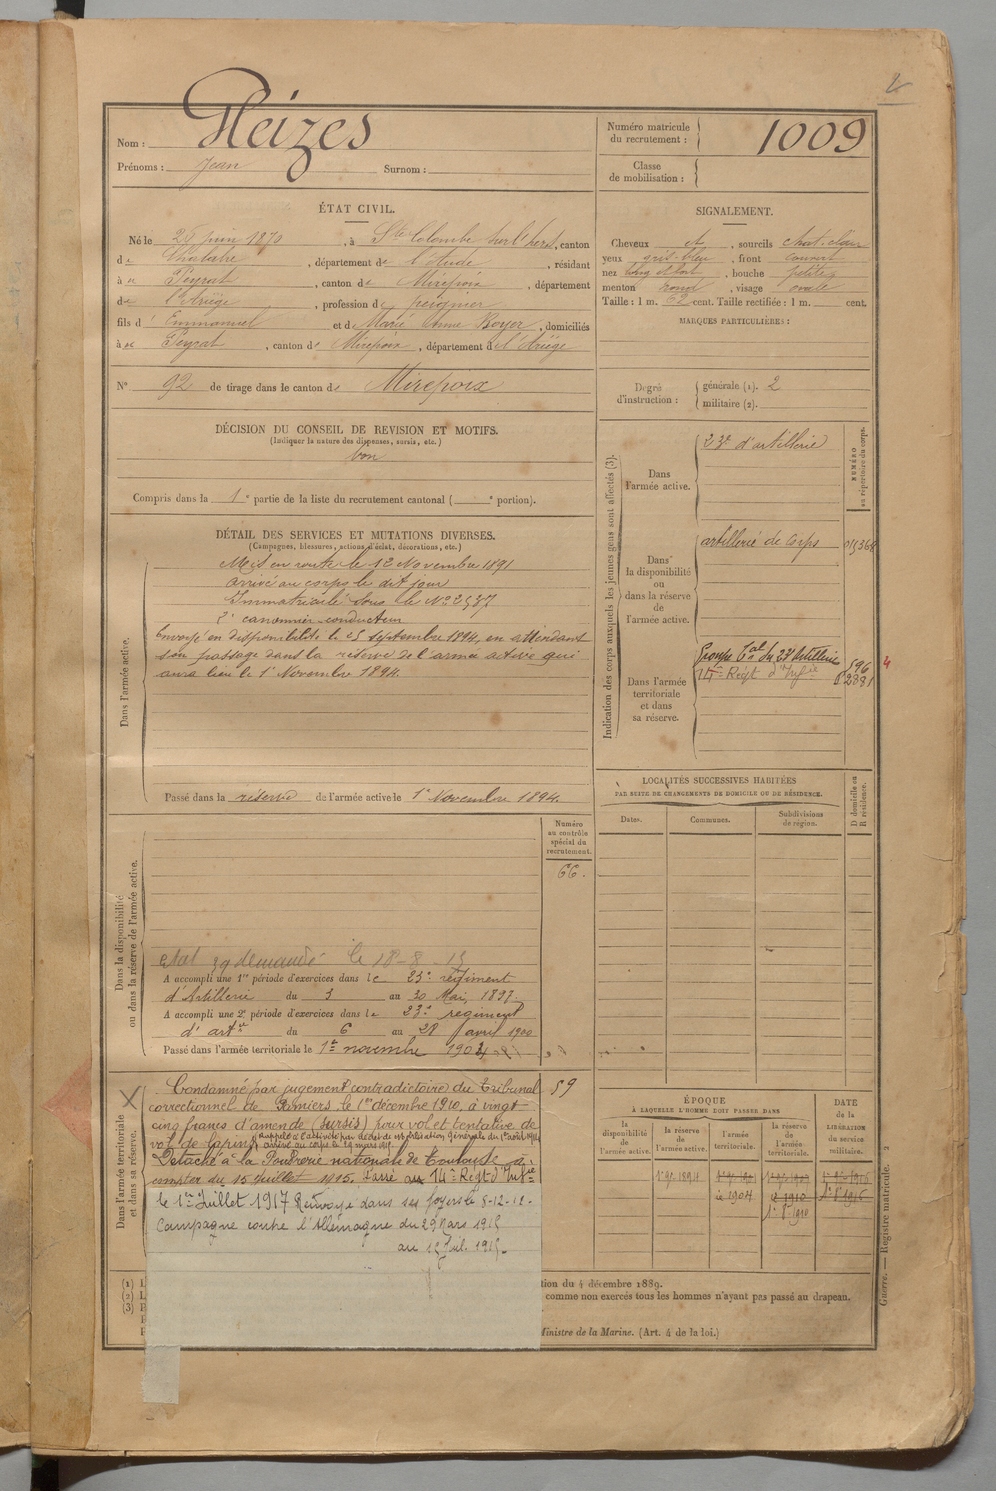 2
Nom : Gleizes
Prénoms : Jean Surnom :
Numéro matricule du recrutement : 1009
Classe de mobilisation :
ÉTAT CIVIL.
Né le 25 juin 1870, à Ste Colombe sur l'hers, canton
de Chalabre, département de l'Aude, résidant
à Peyrat, canton de Mirepoix, département
de l'Ariège, profession de peignier
fils d' Emmanuel et de Marie Anne Boyer, domiciliés
à Peyrat, canton de Mirepoix, département de l'Ariège
N° 92 de tirage dans le canton de Mirepoix
SIGNALEMENT.
Cheveux et, sourcils chat. clair
yeux gris-bleu, front couvert
nez long et fort, bouche petite
menton rond, visage ovale
Taille : 1 m. 62 cent. Taille rectifiée : 1 m. cent.
MARQUES PARTICULIÈRES :
Degré d'instruction : générale (1). 2
militaire (2).
DÉCISION DU CONSEIL DE REVISION ET MOTIFS.
(Indiquer la nature des dispenses, sursis, etc.)
bon
Compris dans la 1e partie de la liste du recrutement cantonal ( e portion).
DÉTAIL DES SERVICES ET MUTATIONS DIVERSES.
(Campagnes, blessures, actions d'éclat, décorations, etc.)
Dans l'armée active.
Mis en route le 12 Novembre 1891
arrivé au corps le dit jour
Immatriculé sous le N° 2537
2e canonnier conducteur
Envoyé en disponibilité le 25 septembre 1894, en attendant
son passage dans la réserve de l'armée active qui
aura lieu le 1er Novembre 1894.
Passé dans la réserve de l'armée active le 1er Novembre 1894.
Indication des corps auxquels les jeunes gens sont affectés (3).
NUMÉRO au répertoire du corps.
Dans l'armée active.
23e d'artillerie
Dans la disponibilité ou dans la réserve de l'armée active.
artillerie de Corps
Dans l'armée territoriale et dans sa réserve.
Groupe Tal du 23e Artillerie 596
14e Regt d'Infie 2381
4
LOCALITÉS SUCCESSIVES HABITÉES
PAR SUITE DE CHANGEMENTS DE DOMICILE OU DE RÉSIDENCE.
Dates. Communes. Subdivisions de région.
D domicile ou R résidence.
Numéro au contrôle spécial du recrutement.
66.
Dans la disponibilité ou dans la réserve de l'armée active.
etat 39 demandé le 18-8-15
A accompli une 1re période d'exercices dans le 23e régiment
d'Artillerie du 3 au 30 Mai, 1897.
A accompli une 2e période d'exercices dans le 23e regiment
d'artie du 6 au 28 avril 1900
Passé dans l'armée territoriale le 1er novembre 1904
Dans l'armée territoriale et dans sa réserve.
59
Condamné par jugement contradictoire du Tribunal
correctionnel de Pamiers le 1er décembre 1910, à vingt
cinq francs d'amende (sursis) pour vol et tentative de
vol de lapins rappelé à l'activité par décret de mobilisation générale du 1er août 1914
arrivé au corps le 29 mars 1915
Détaché à la Poudrerie nationale de Toulouse à
compter du 15 juillet 1915. Passé au 14e Regt d'Infie
le 1er Juillet 1917 Renvoyé dans ses foyers le 8-12-18-
Campagne contre l'Allemagne du 29 Mars 1915
au 15 Juil. 1915-
ÉPOQUE
À LAQUELLE L'HOMME DOIT PASSER DANS
la disponibilité de l'armée active.
la réserve de l'armée active.
l'armée territoriale.
la réserve de l'armée territoriale.
DATE de la LIBÉRATION du service militaire.
(1)
(2)
(3)
tion du 4 décembre 1889.
comme non exercés tous les hommes n'ayant pas passé au drapeau.
Ministre de la Marine. (Art. 4 de la loi.)
Guerre. — Registre matricule. 2